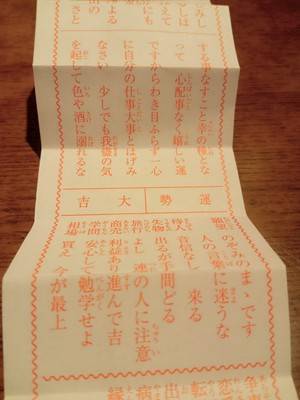 する事なすこと幸の種とな
って 心配事なく嬉しい運
ですからわき目ふらず一心
に自分の仕事大事とはげみ
なさい 少しでも我儘の気
を起して色や酒に溺れるな
運勢 大吉
願望 のぞみのまゝです
人の言葉に迷うな
待人 音信なし 来る
失物 出るが手間どる
旅行 よし 連の人に注意
商売 利益あり進んで吉
学問 安心して勉学せよ
相場 買え 今が最上
争
恋
転
出
病
縁